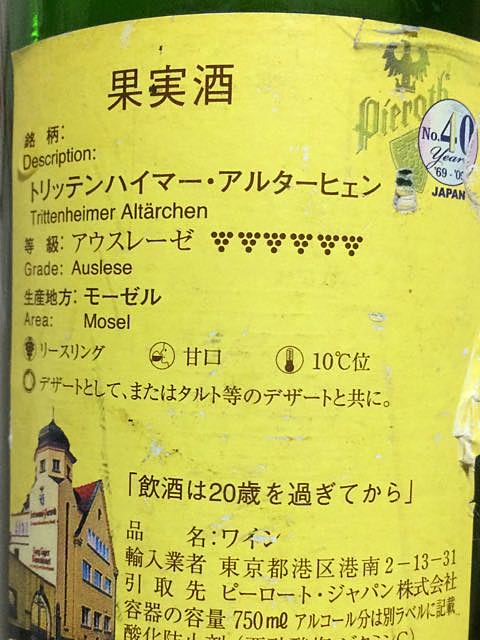 果実酒
Pieroth
No.40
Years
'69 - '09
JAPAN
銘 柄:
Description:
トリッテンハイマー・アルターヒェン
Trittenheimer Altärchen
等 級: アウスレーゼ
Grade: Auslese
生産地方: モーゼル
Area: Mosel
リースリング 甘口 10℃位
デザートとして、またはタルト等のデザートと共に。
「飲酒は20歳を過ぎてから」
品 名:ワイン
輸入業者 東京都港区港南2-13-31
引 取 先 ピーロート・ジャパン株式会社
容器の容量 750ml アルコール分は別ラベルに記載